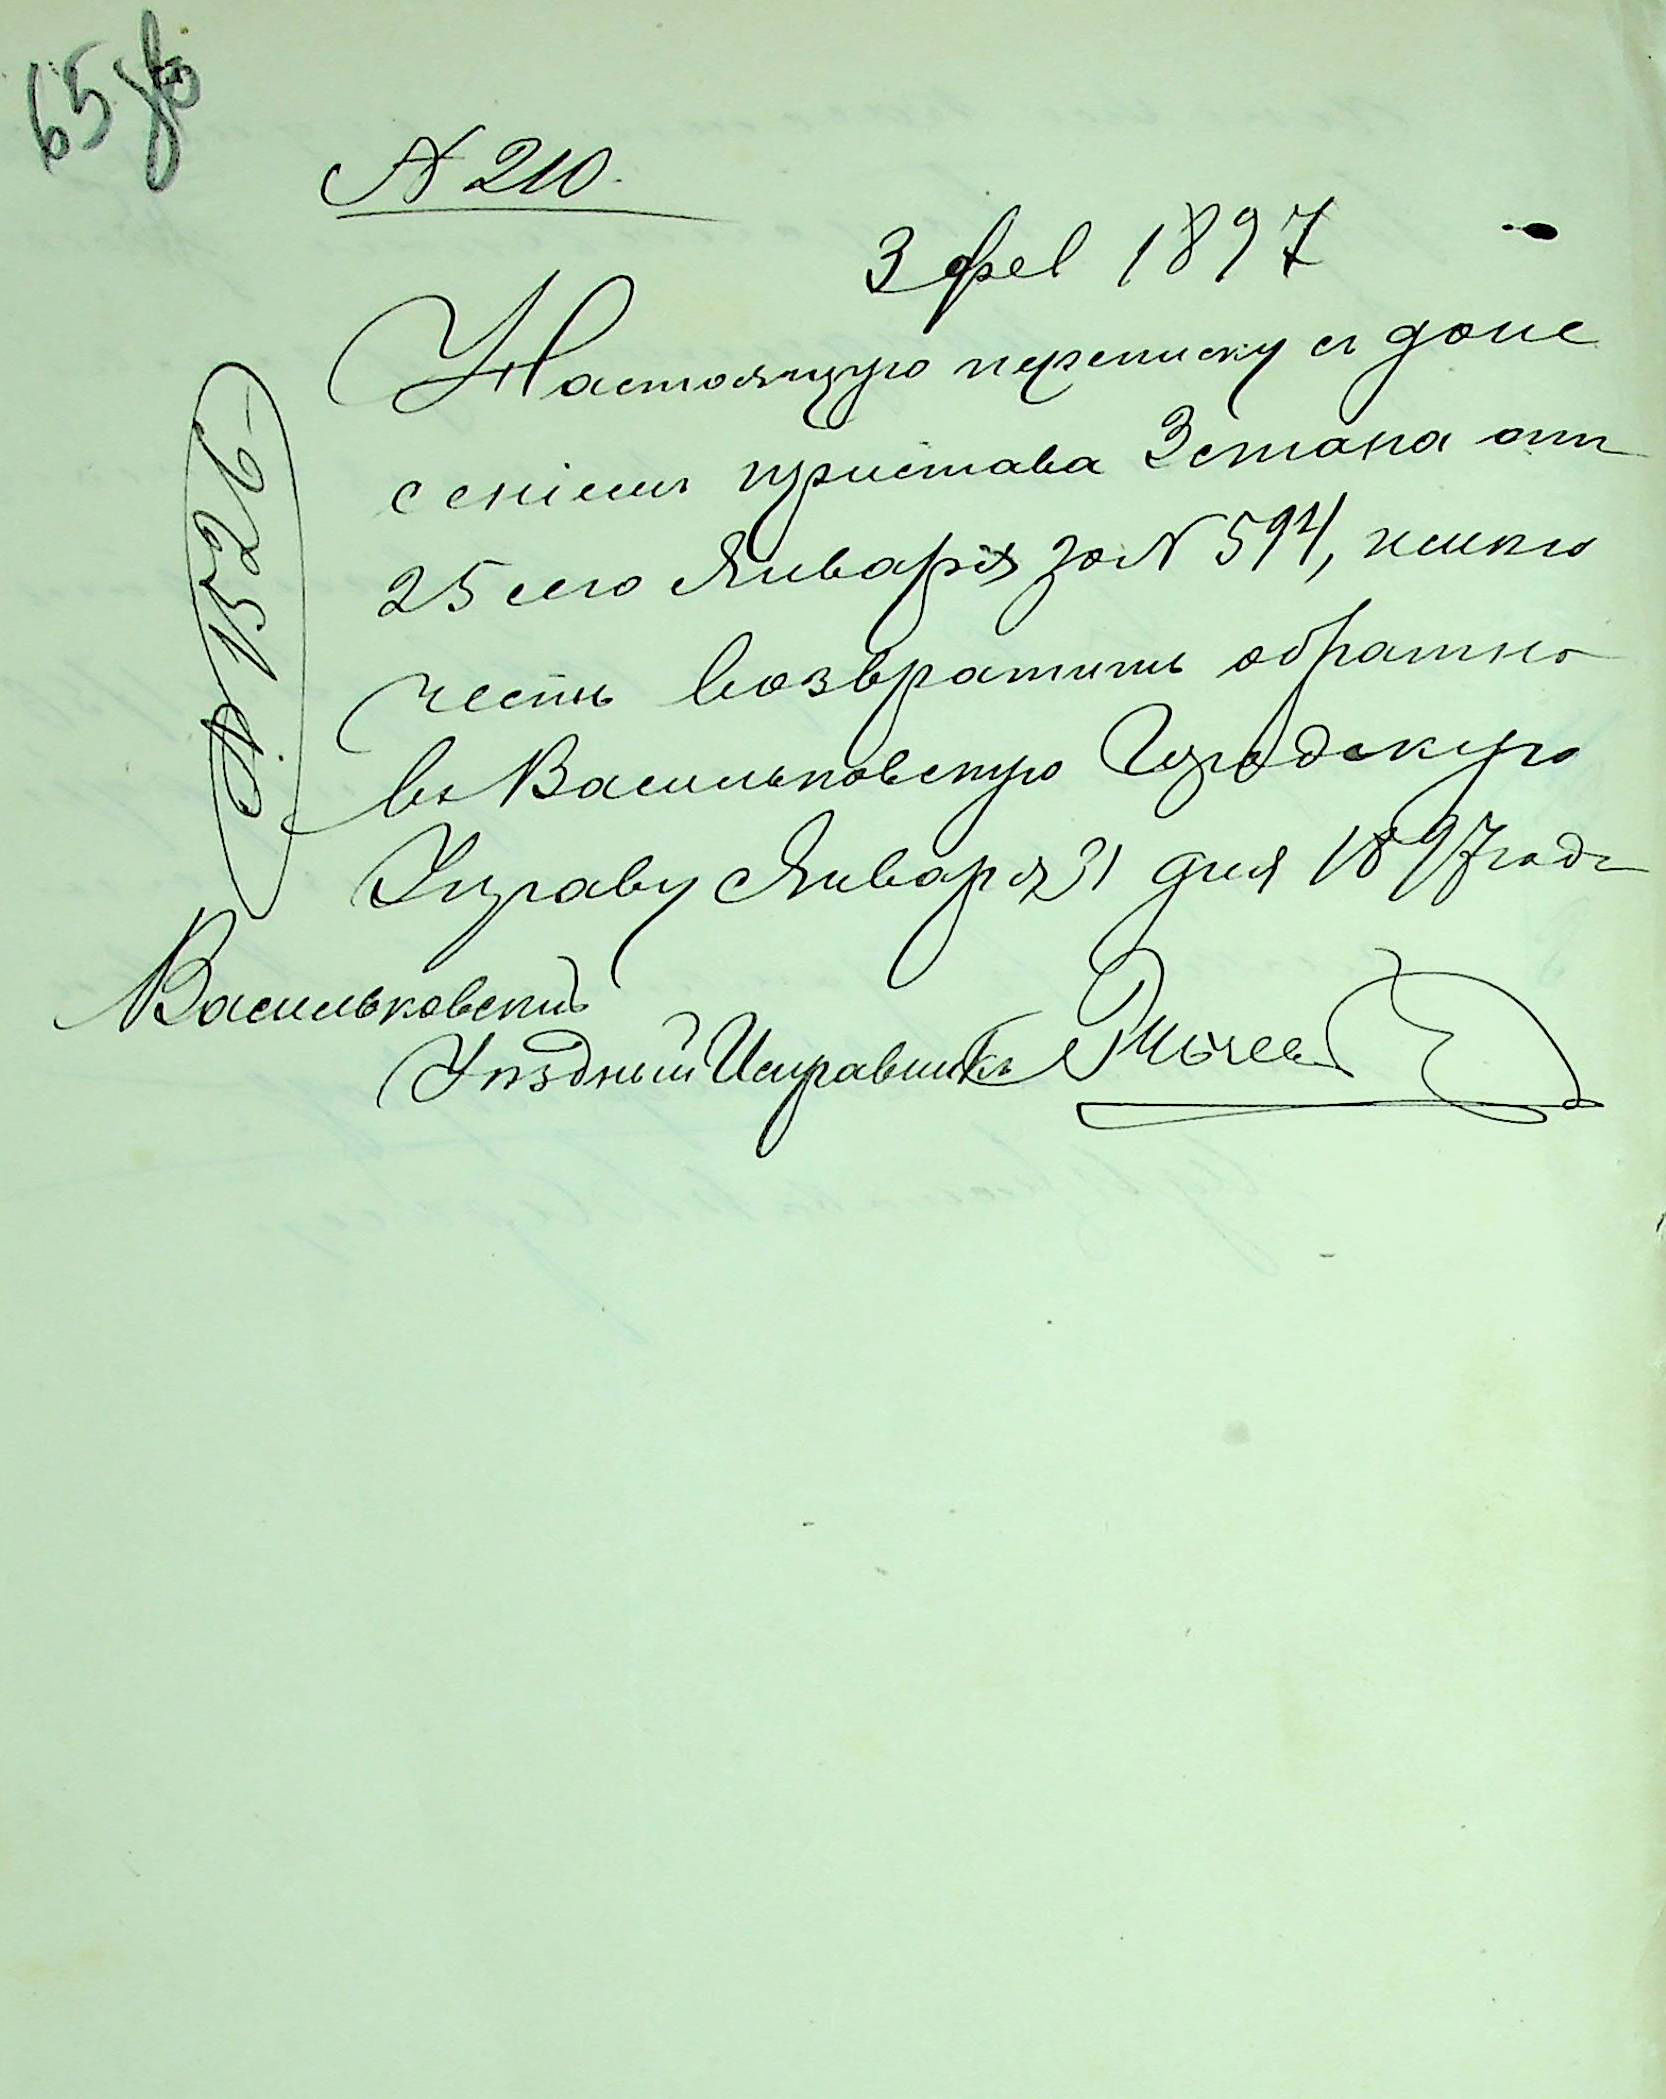 65 об
№ 210.
3 фев 1897
Настоящую переписку съ доне
сеніемъ пристава 3 стана отъ
25 сего Января за № 594, имѣю
честь возвратить обратно
въ Васильковскую Городскую
Управу Января 31 дня 1897 года
№ 1526
Васильковскій
Уѣздный Исправникъ